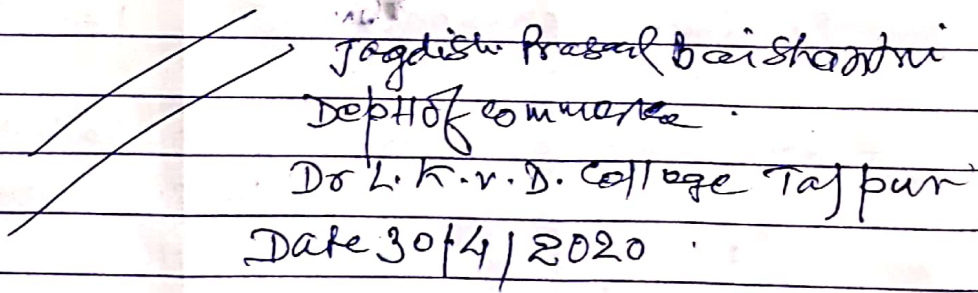 Jagdish Prasad Baishantri
Deptt of commerce.
Dr L.K.V.D. College Tajpur
Date 30/4/2020.